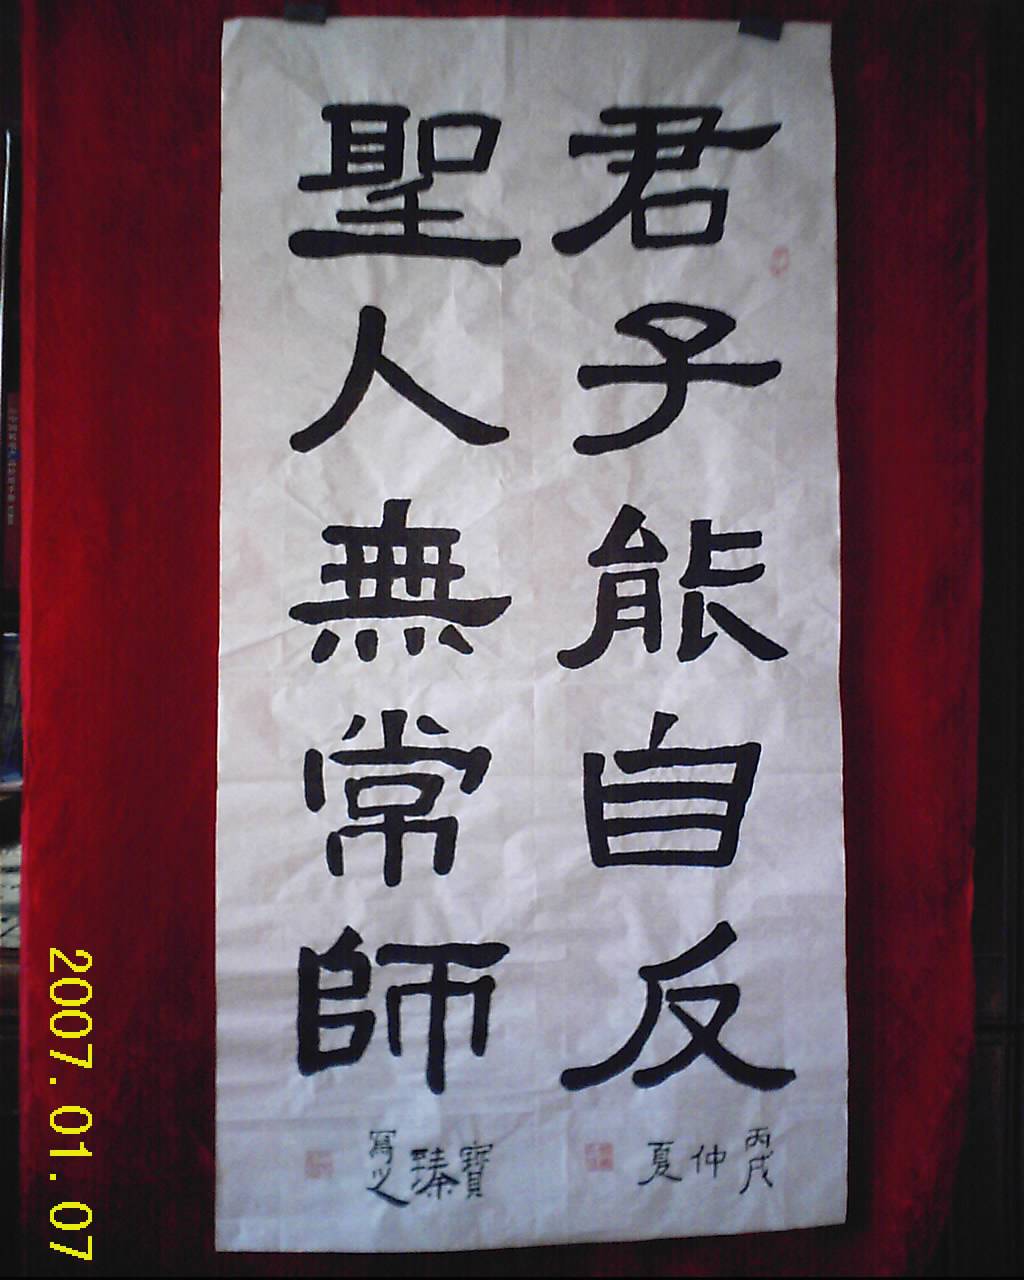 君子能自反
聖人無常師
丙戌仲夏
寶臻寫之
2007.01.07